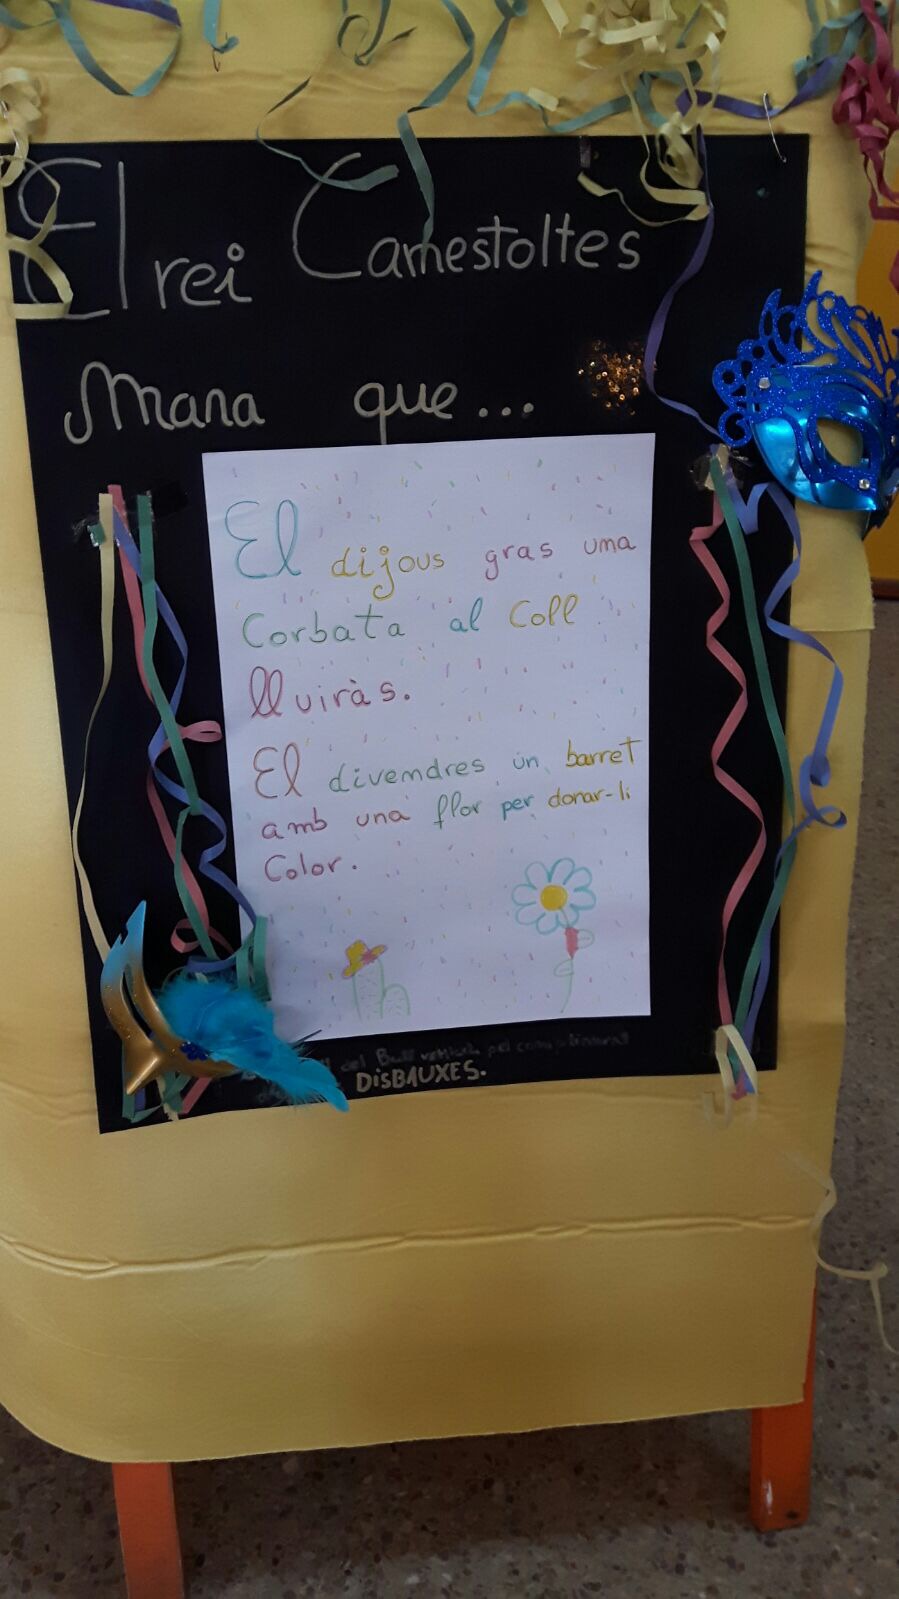 El rei Carnestoltes
Mana que...
El dijous gras una
Corbata al Coll
lluiràs.
El divendres un barret
amb una flor per donar-li
Color.
del Ball
DISBAUXES.